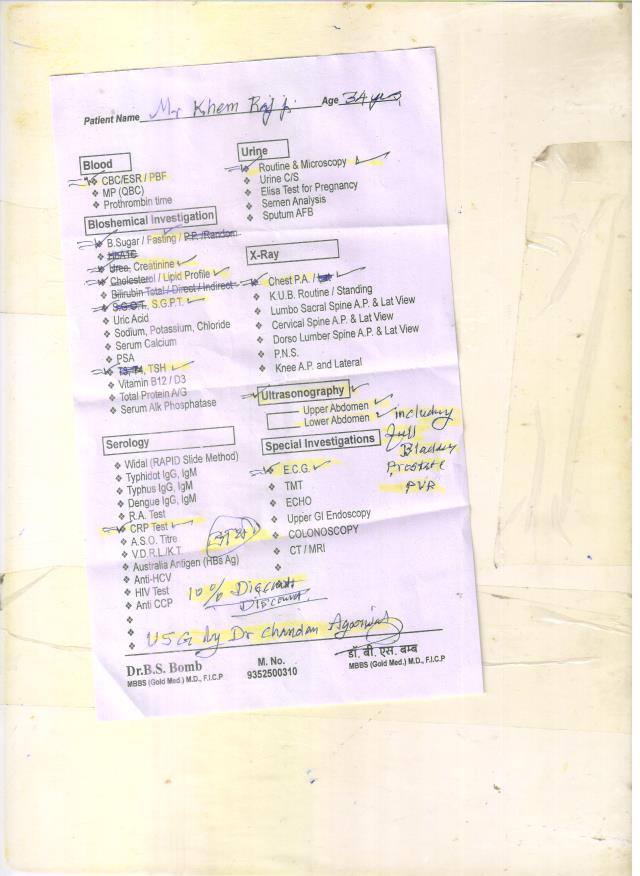 Patient Name Mr Khem Raj ji Age 34 yrs
Blood
❖ CBC/ESR / PBF
❖ MP (QBC)
❖ Prothrombin time
Bioshemical Investigation
❖ B.Sugar / Fasting / P.P. /Random
❖ HbA1C
❖ Urea, Creatinine
❖ Cholesterol / Lipid Profile
❖ Bilirubin Total / Direct / Indirect
❖ S.G.O.T., S.G.P.T.
❖ Uric Acid
❖ Sodium, Potassium, Chloride
❖ Serum Calcium
❖ PSA
❖ T3, T4, TSH
❖ Vitamin B12 / D3
❖ Total Protein A/G
❖ Serum Alk Phosphatase
Serology
❖ Widal (RAPID Slide Method)
❖ Typhidot IgG, IgM
❖ Typhus IgG, IgM
❖ Dengue IgG, IgM
❖ R.A. Test
❖ CRP Test
❖ A.S.O. Titre
❖ V.D.R.L/K.T.
❖ Australia Antigen (HBs Ag)
❖ Anti-HCV
❖ HIV Test
❖ Anti CCP
❖
❖
❖
Urine
❖ Routine & Microscopy
❖ Urine C/S
❖ Elisa Test for Pregnancy
❖ Semen Analysis
❖ Sputum AFB
X-Ray
❖ Chest P.A. /
❖ K.U.B. Routine / Standing
❖ Lumbo Sacral Spine A.P. & Lat View
❖ Cervical Spine A.P. & Lat View
❖ Dorso Lumber Spine A.P. & Lat View
❖ P.N.S.
❖ Knee A.P. and Lateral
Ultrasonography
Upper Abdomen
Lower Abdomen
including
Full
Bladder
Prostate
PVR
Special Investigations
❖ E.C.G.
❖ TMT
❖ ECHO
❖ Upper GI Endoscopy
❖ COLONOSCOPY
❖ CT / MRI
❖
10% Discount
Discount
USG by Dr Chandan Agarwal
Dr.B.S. Bomb
MBBS (Gold Med.) M.D., F.I.C.P
M. No.
9352500310
डॉ. बी. एस. बम्ब
MBBS (Gold Med.) M.D., F.I.C.P